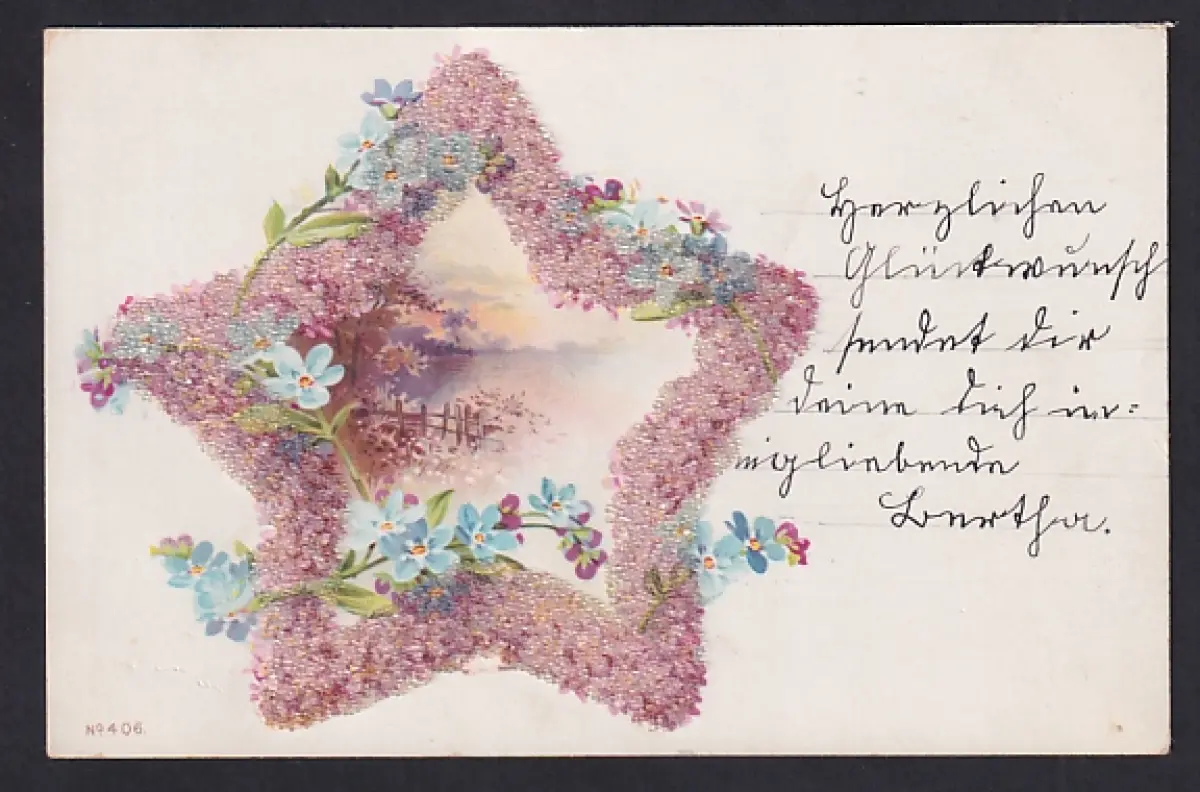 Herzlichen
Glückwunsch
sendet dir
deine dich in-
nigliebende
Bertha.
No. 406.